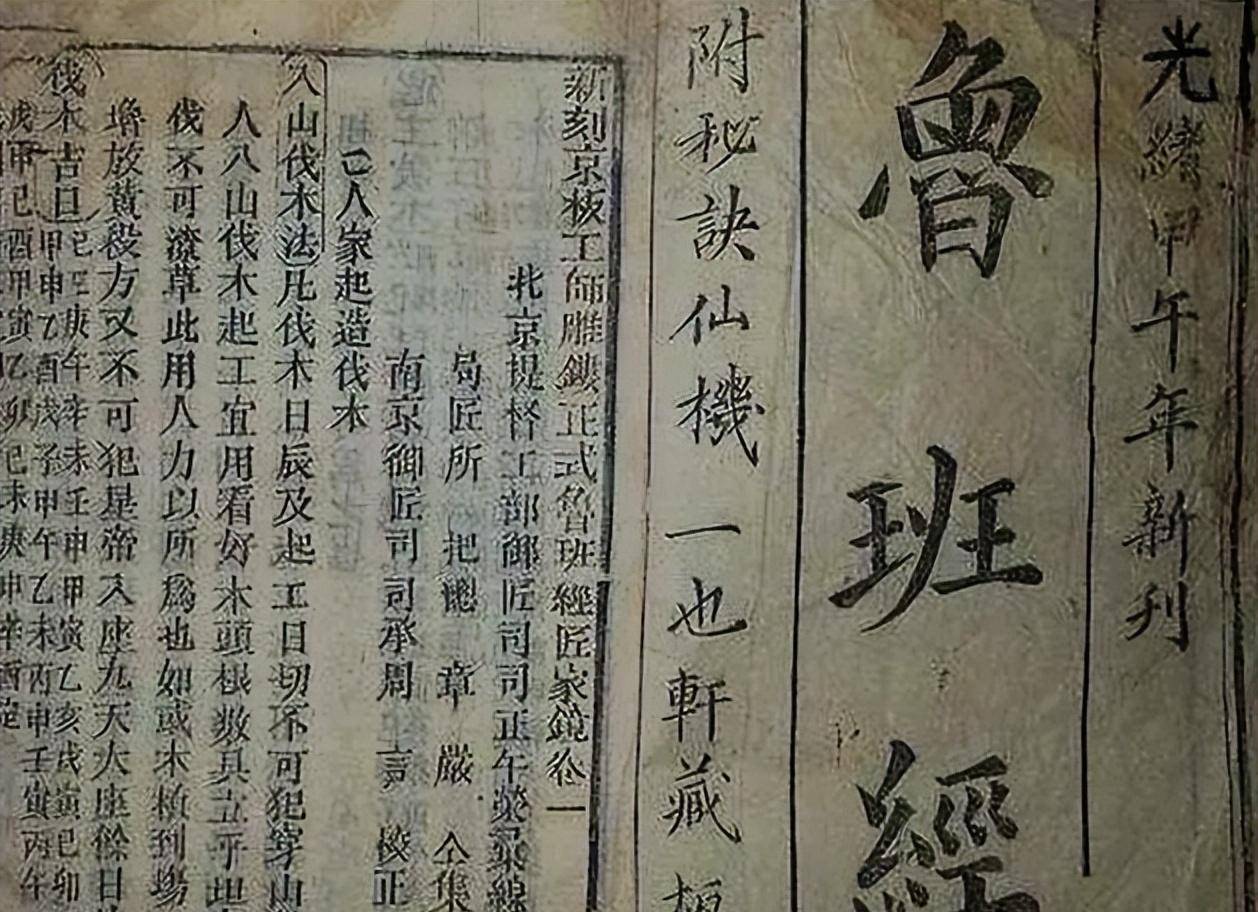 光緒甲午年新刊
魯班經
附秘訣仙機 一也軒藏板
新刻京板工師雕鏤正式魯班經匠家鏡卷一
北京提督工部御匠司司正午榮彙編
局匠所 把總 章 嚴 仝集
南京御匠司司承周 言 校正
人家起造伐木
入山伐木法凡伐木日辰及起工日切不可犯穿山
入山伐木起工宜用看好木頭根數具立平坦
伐不可潦草此用人力以所爲也如或木植到塲
堆放黃殺方又不可犯皇帝入座九天大座餘日
伐木吉日己巳庚午辛未壬申甲寅乙亥戊寅己卯
甲申乙酉戊子甲午乙未丙申壬寅丙午
甲寅乙卯己未庚申辛酉定